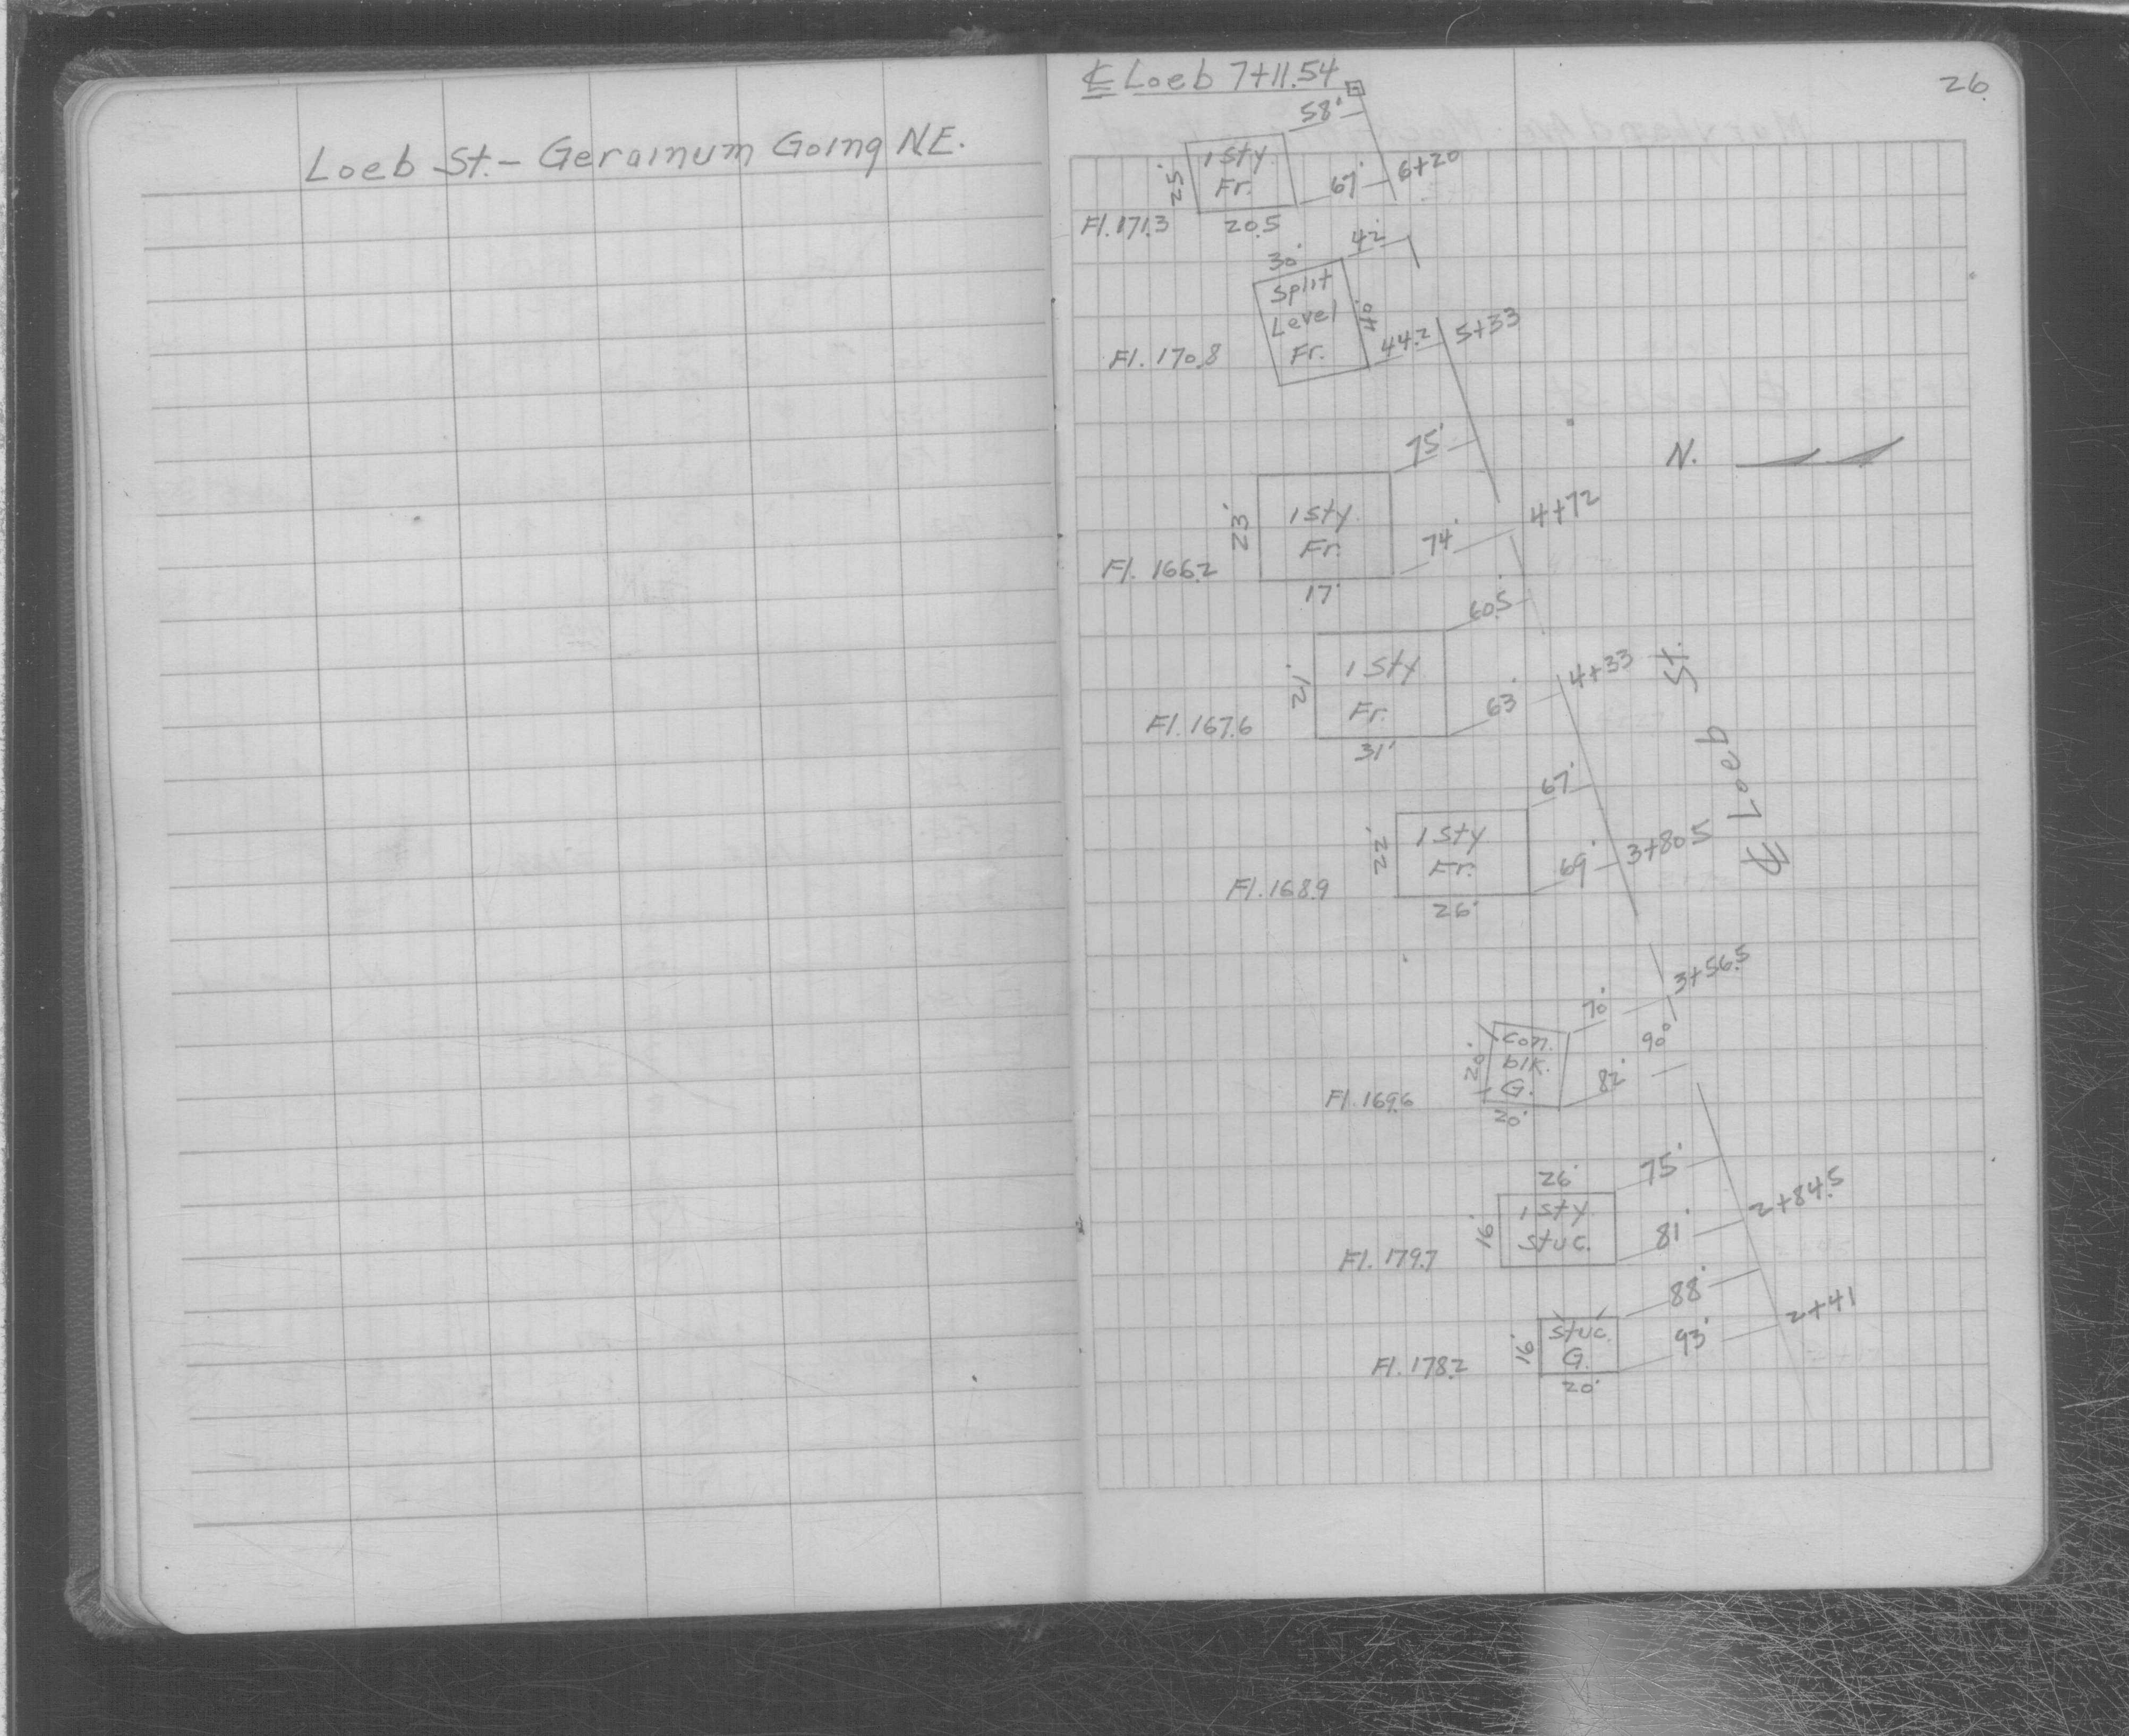 Loeb St. - Gerainum Going NE.
℄ Loeb 7+11.54
26.
58'
25'
1 sty.
Fr.
67'
6+20
Fl. 171.3
20.5
42'
30'
Split
Level
Fr.
40'
44.2
5+33
Fl. 170.8
75'
N.
23'
1 sty.
Fr.
74'
4+72
Fl. 166.2
17'
60.5'
21'
1 sty
Fr.
63'
4+33
St.
Fl. 167.6
31'
67'
℄ Loeb
22'
1 sty.
Fr.
69'
3+80.5
Fl. 168.9
26'
3+56.5
70'
90°
20'
Con.
blk.
G.
82'
Fl. 169.6
20'
75'
26'
16'
1 sty.
stuc.
81'
2+84.5
Fl. 179.7
88'
16'
Stuc.
G.
93'
2+41
Fl. 178.2
20'